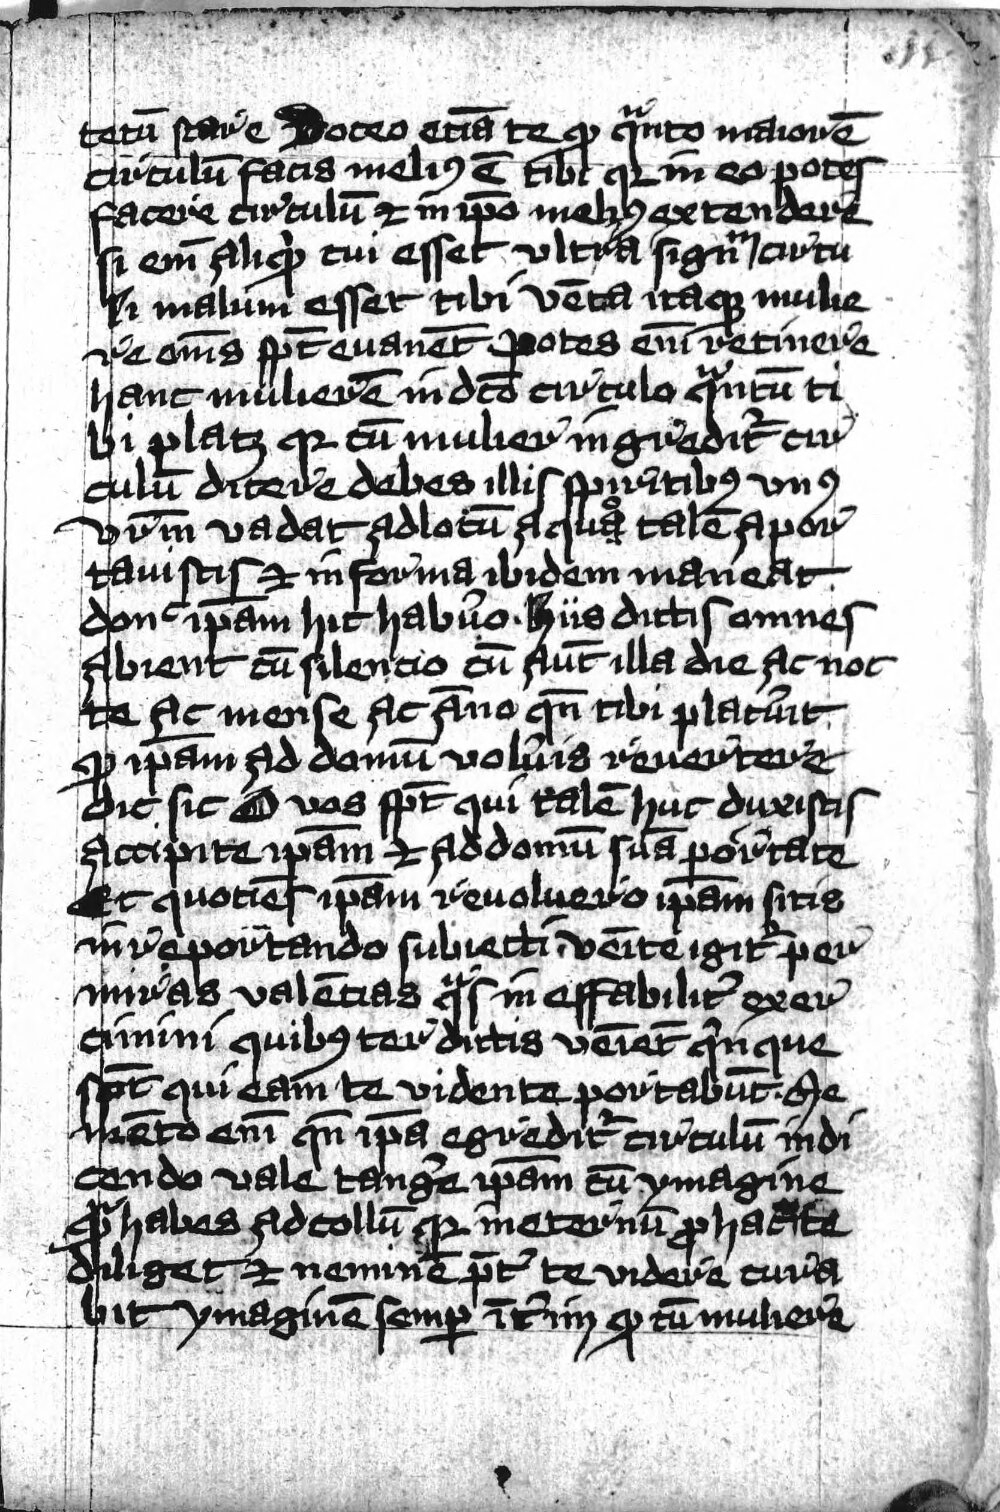 tecū stare Doceo eciā te ꝙ quanto maiorē
circulū facis meliꝰ ē tibi qꝛ in eo potes
facere circulū ⁊ in ip̄o meliꝰ extendere
si em̄ aliqͥd tui esset vltra signū circu
li malum esset tibi vēta itaqꝫ mulie
re om̄s sp̄t euanēt Potes em̄ retinere
hanc mulierē in dc̄o circulo quantū ti
bi placꝫ qꝛ cū mulier ingredit᷑ cir
culū dicere debes illis spiritibꝰ vnꝰ
vr̄m vadat ad locū a quo talē apor
tauistis ⁊ in forma ibidem maneat
donᶜ ip̄am hic habuͦo · hiis dictis omnes
abient cū silencio cū aūt illa die ac noc
te ac mense ac āno qn̄ tibi placuͥt
ꝙ ip̄am ad domū voluis reuertere
dic sic O vos sp̄t qui talē huc duxistis
accipite ip̄am ⁊ ad domū suā portate
Et quociēs ip̄am reuoluero ip̄am sitis
in reportando subiecti · veīte igit᷑ per
miras valēcias qͣs in effabilit᷑ exer
cimini quibꝰ ter dictis vēiēt qͥnque
sp̄t qui eam te vidente portabūt · Me
mēto em̄ qn̄ ip̄a egredit᷑ circulū in di
cendo vale tang᷑e ip̄am cū ymagine
qͣm habes ad collū qꝛ in eternū ꝓ hac te
diliget ⁊ neminē p̄t᷑ te videre cura
bit ymaginē semꝑ īt᷑im ꝙ cū muliere